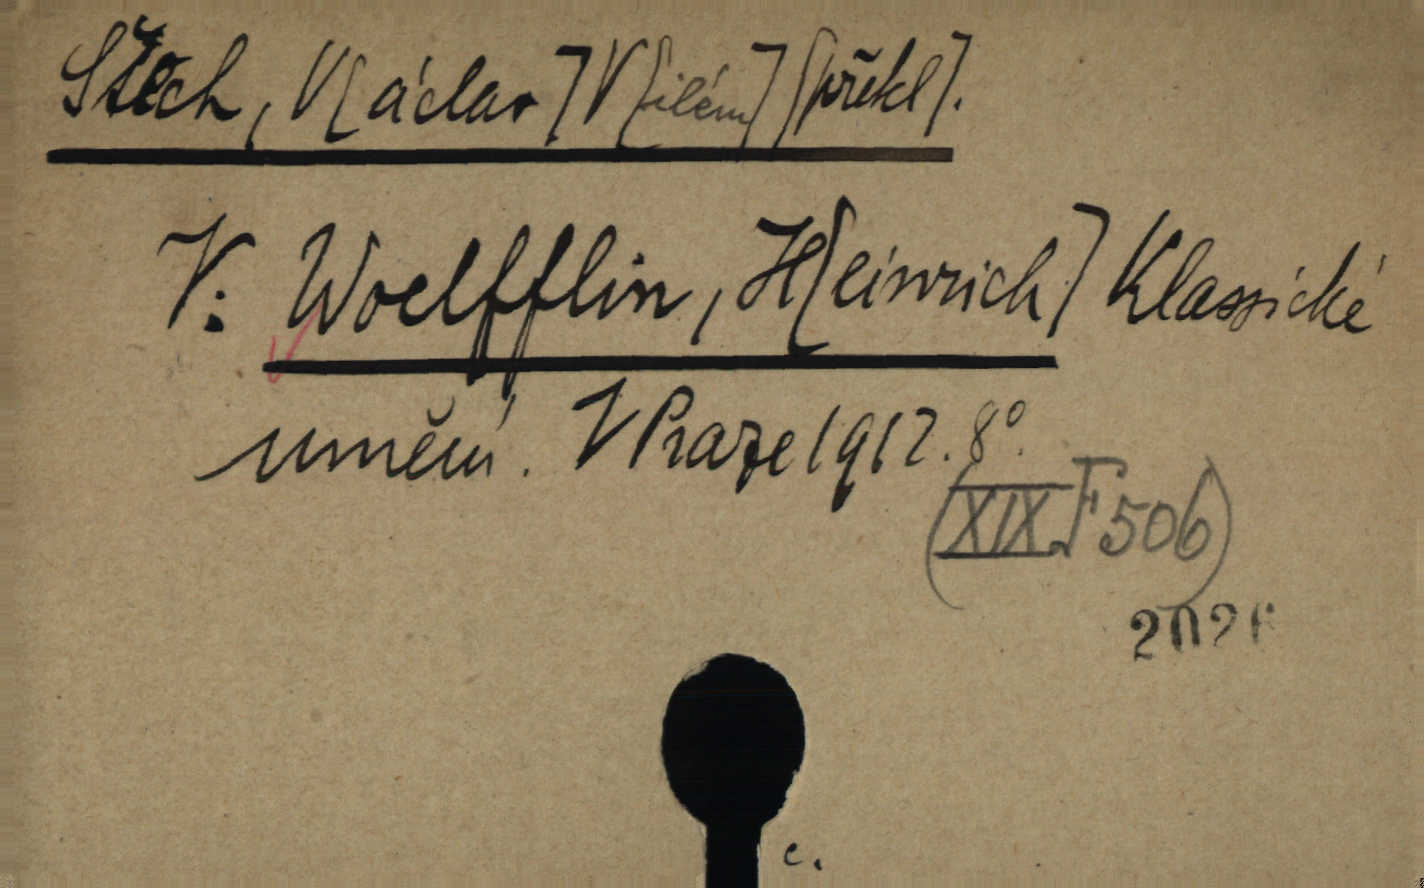 Štech, V[áclav] V[ilém] [překl].
V: Woelfflin, H[einrich] Klassické
umění. V Praze 1912. 8°.
(XIX F 506)
2026
c.